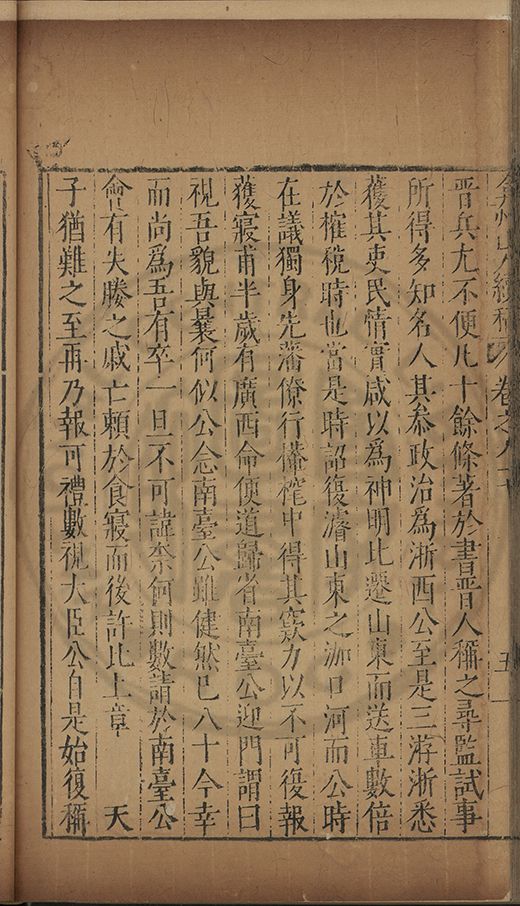 續稿 卷之八十 五
晉兵尤不便凡十餘條著於書晉人稱之尋監試事
所得多知名人其叅政治爲浙西公至是三游浙悉
獲其吏民情實咸以爲神明比遷山東而送車數倍
於榷稅時也當是時詔復濬山東之泇口河而公時
在議獨身先藩僚行中得其窾力以不可復報
獲寢甫半歲有廣西命便道歸省南臺公迎門謂曰
視吾貌與曩何似公念南臺公雖健然已八十今幸
而尚爲吾有卒一旦不可諱柰何則數請於南臺公
會有失媵之戚亡賴於食寢而後許比上章 天
子猶難之至再乃報可禮數視大臣公自是始復稱